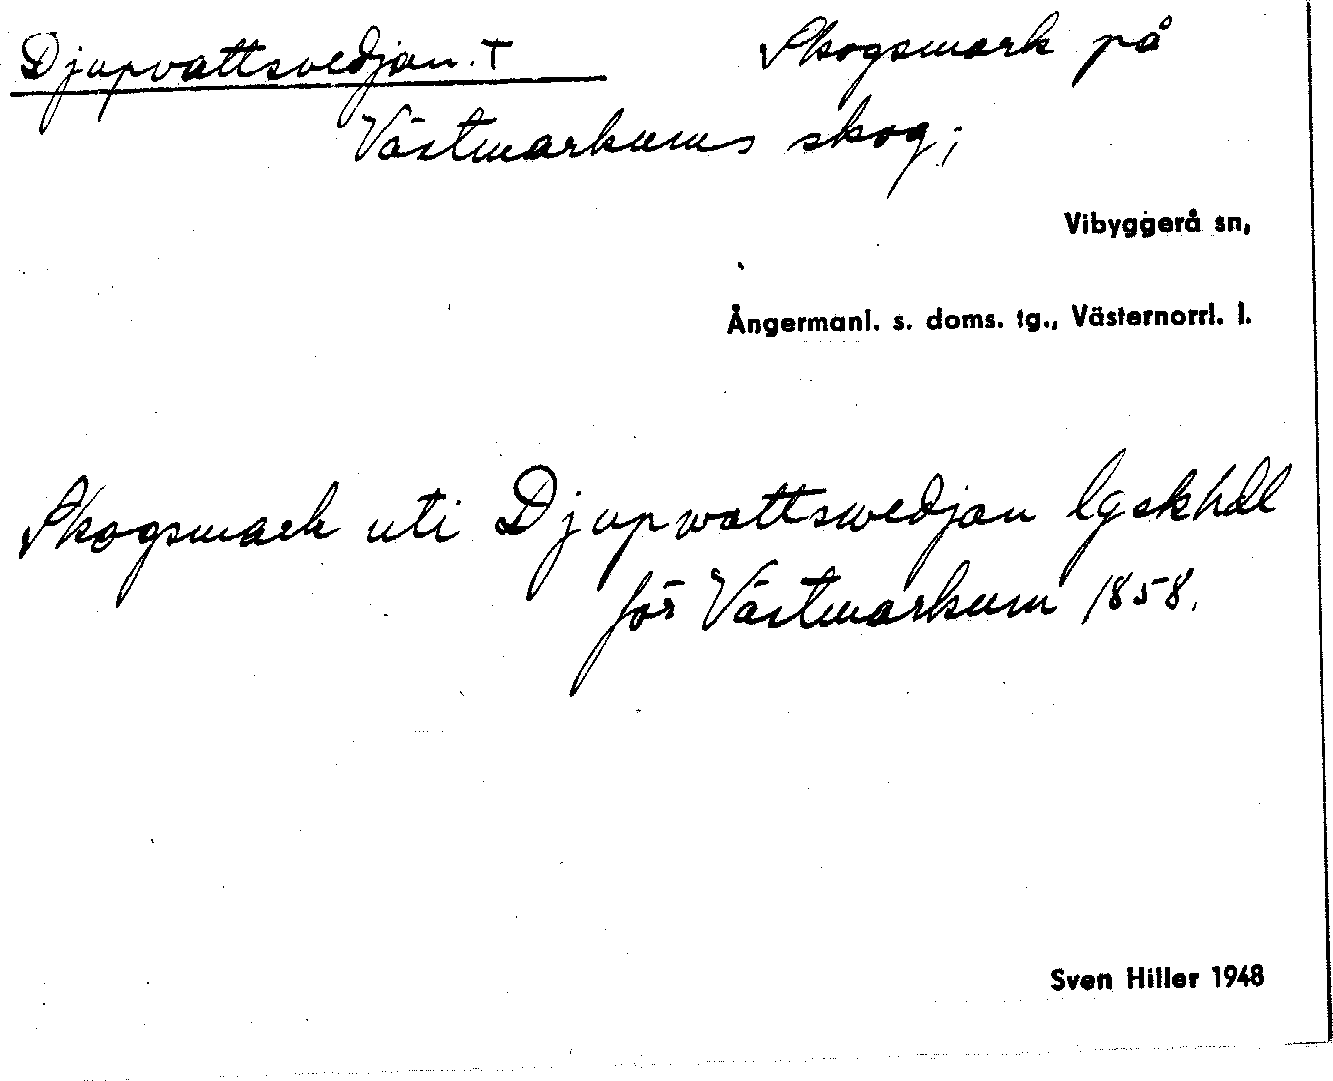 Djupvattsvedjan. T Skogsmark på
Västmarkums skog;
Vibyggerå sn,
Ångermanl. s. doms. tg., Västernorrl. l.
Skogsmark uti Djupwattswedjan lgskhdl
för Västmarkum 1858.
Sven Hiller 1948